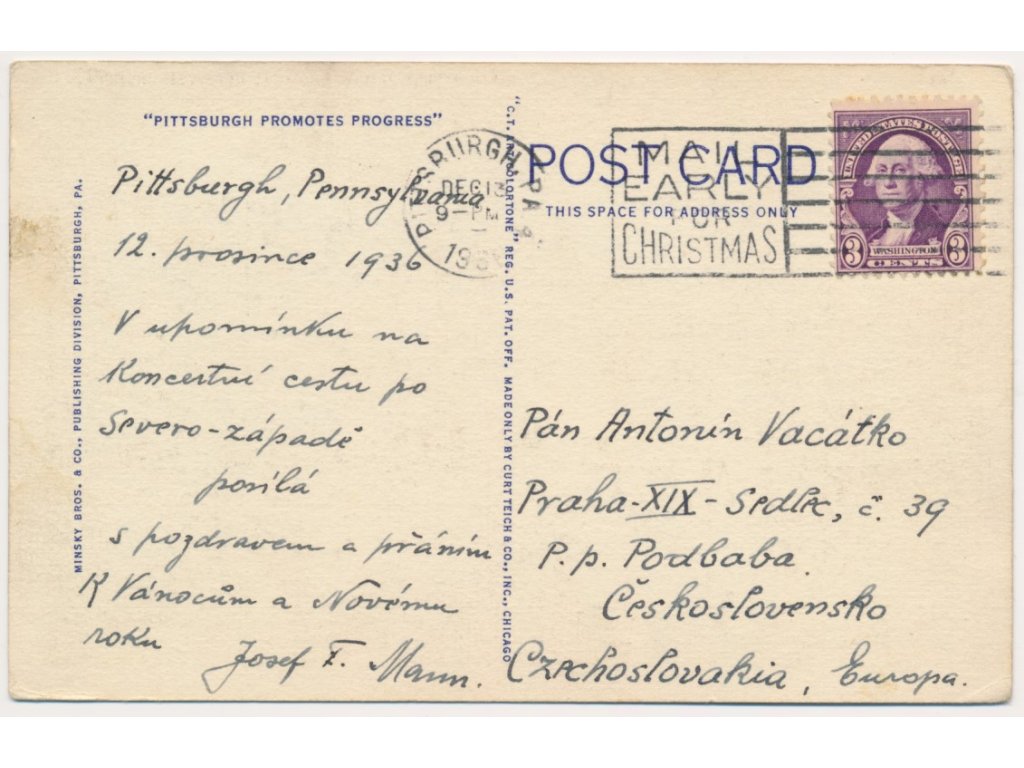 "PITTSBURGH PROMOTES PROGRESS"
Pittsburgh, Pennsylvania
12. prosince 1936
V upomínku na
Koncertní cestu po
Severo-západě
posílá
s pozdravem a přáním
K Vánocům a Novému
roku
Josef F. Mann.
MINSKY BROS. & CO., PUBLISHING DIVISION, PITTSBURGH, PA.
"C.T. ART COLORTONE" REG. U.S. PAT. OFF. MADE ONLY BY CURT TEICH & CO., INC., CHICAGO
PITTSBURGH, PA.
DEC 13
9-PM
193
POST CARD
THIS SPACE FOR ADDRESS ONLY
MAIL
EARLY
FOR
CHRISTMAS
UNITED STATES POSTAGE
3 WASHINGTON 3
CENTS
Pán Antonín Vacátko
Praha-XIX-Sedlec, č. 39
P. p. Podbaba
Československo
Czechoslovakia, Europa.